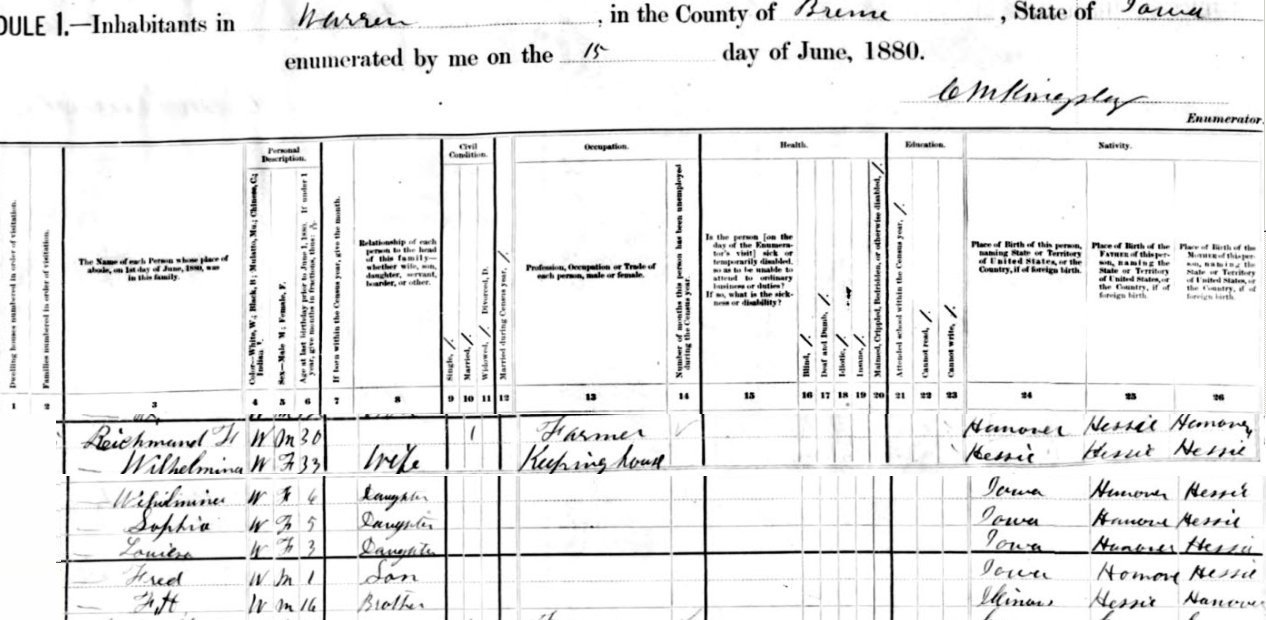 DULE 1.—Inhabitants in Warren, in the County of Breme, State of Iowa
enumerated by me on the 15 day of June, 1880.
C M Kingsley
Enumerator.
Personal Description.
Civil Condition.
Occupation.
Health.
Education.
Nativity.
Dwelling houses numbered in order of visitation.
Families numbered in order of visitation.
The Name of each Person whose place of abode, on 1st day of June, 1880, was in this family.
Color—White, W; Black, B; Mulatto, Mu.; Chinese, C; Indian, I.
Sex—Male M; Female, F.
Age at last birthday prior to June 1, 1880. If under 1 year, give months in fractions, thus:
If born within the Census year, give the month.
Relationship of each person to the head of this family—whether wife, son, daughter, servant, boarder, or other.
Single, /.
Married, /.
Widowed, /. Divorced, D.
Married during Census year, /.
Profession, Occupation or Trade of each person, male or female.
Number of months this person has been unemployed during the Census year.
Is the person [on the day of the Enumerator's visit] sick or temporarily disabled, so as to be unable to attend to ordinary business or duties? If so, what is the sickness or disability?
Blind, /.
Deaf and Dumb, /.
Idiotic, /.
Insane, /.
Maimed, Crippled, Bedridden, or otherwise disabled, /.
Attended school within the Census year, /.
Cannot read, /.
Cannot write, /.
Place of Birth of this person, naming State or Territory of United States, or the Country, if of foreign birth.
Place of Birth of the FATHER of this person, naming the State or Territory of United States, or the Country, if of foreign birth.
Place of Birth of the MOTHER of this person, naming the State or Territory of United States, or the Country, if of foreign birth.
1 2 3 4 5 6 7 8 9 10 11 12 13 14 15 16 17 18 19 20 21 22 23 24 25 26
Reichmund F W M 30 1 Farmer Hanover Hessie Hanover
— Wilhelmina W F 33 Wife Keeping house Hessie Hessie Hessie
— Wihilmina W F 6 Daughter Iowa Hanover Hessie
— Sophia W F 5 Daughter Iowa Hanove Hessie
— Louisa W F 3 Daughter Iowa Hanover Hessie
— Fred W M 1 Son Iowa Hanove Hessie
— F H W M 16 Brother Illinois Hessie Hanover